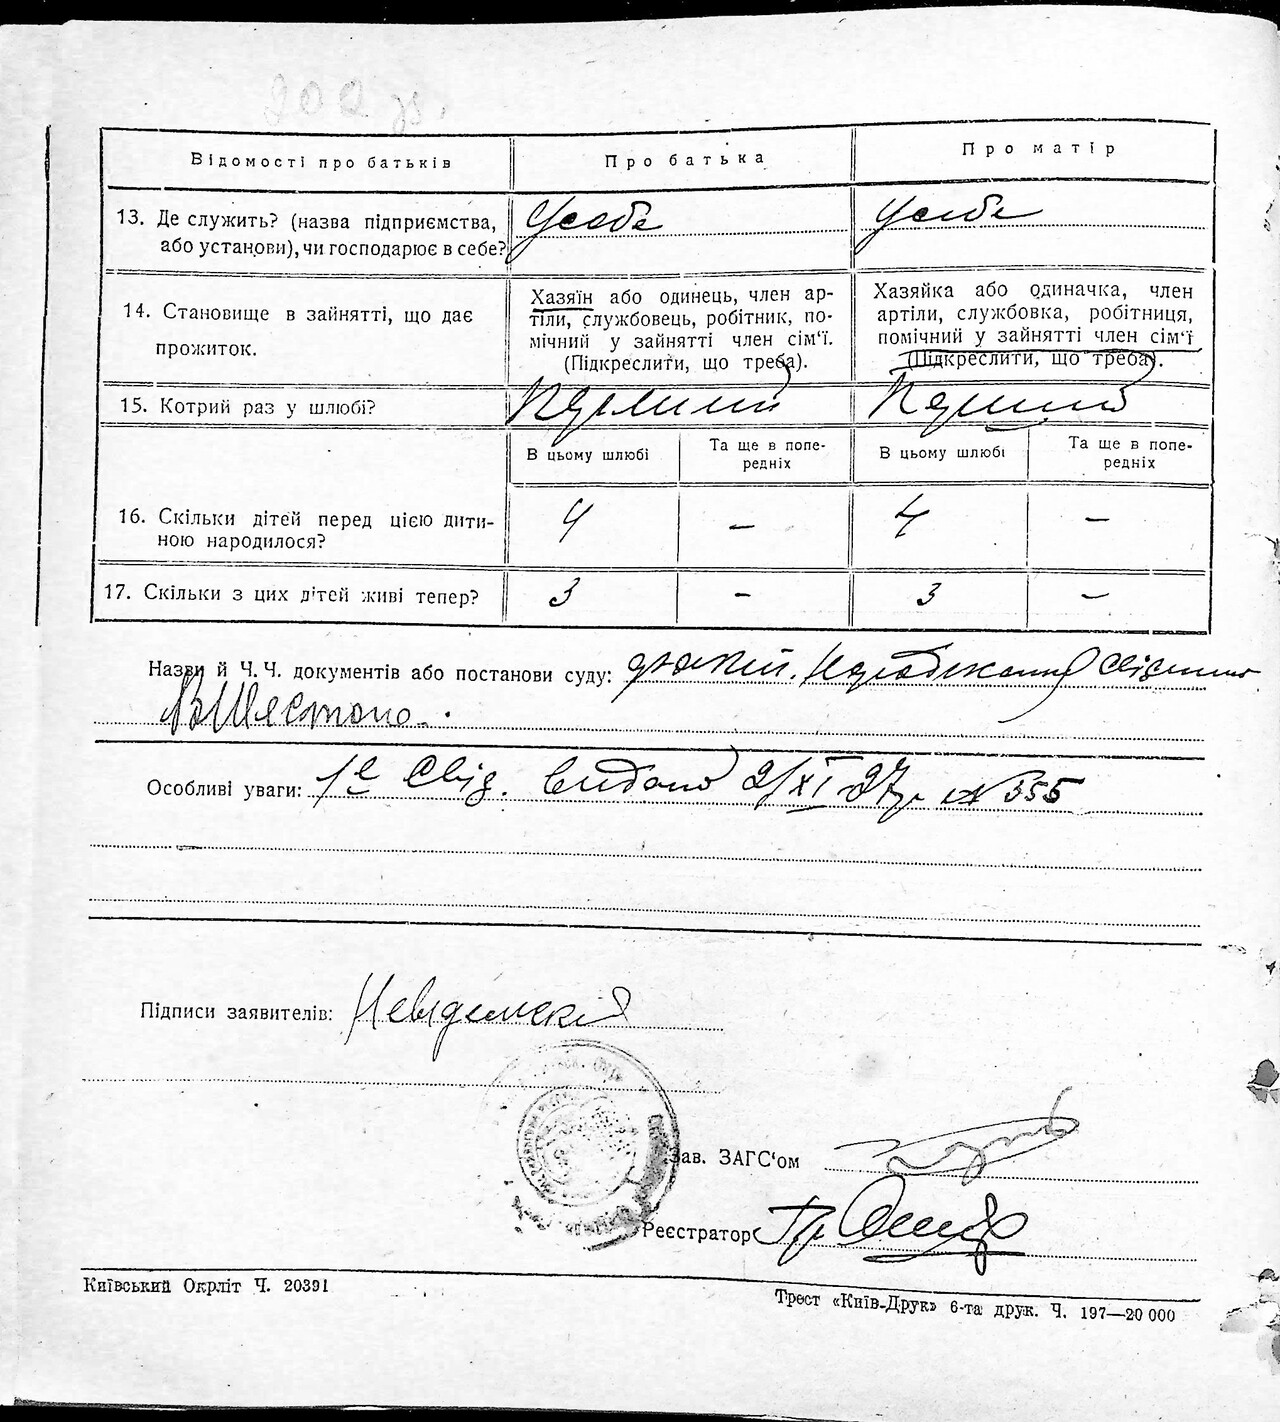 202 зв.
Відомості про батьків
Про батька
Про матір
13. Де служить? (назва підприємства,
або установи), чи господарює в себе?
Усебе
Усебе
14. Становище в зайнятті, що дає
прожиток.
Хазяїн або одинець, член ар-
тіли, службовець, робітник, по-
мічний у зайнятті член сім'ї.
(Підкреслити, що треба).
Хазяйка або одиначка, член
артіли, службовка, робітниця,
помічний у зайнятті член сім'ї
(Підкреслити, що треба).
15. Котрий раз у шлюбі?
Перший
Перший
В цьому шлюбі
Та ще в попе-
редніх
В цьому шлюбі
Та ще в попе-
редніх
16. Скільки дітей перед цією дити-
ною народилося?
4
—
4
—
17. Скільки з цих дітей живі тепер?
3
—
3
—
Назви й Ч. Ч. документів або постанови суду:
Особливі уваги: 1е Свід. видано 2/XI-27р № 355
Підписи заявителів:
Зав. ЗАГС'ом
Реєстратор
Київський Окрліт Ч. 20391
Трест «Київ-Друк» 6-та друк. Ч. 197—20 000